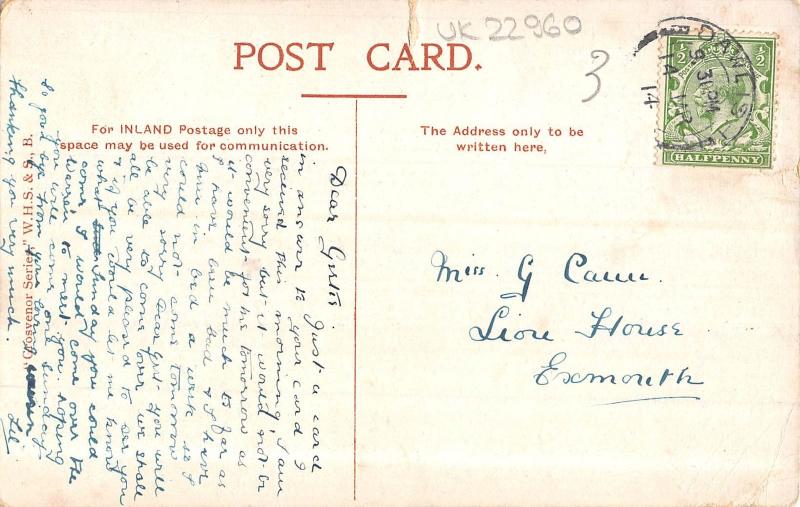 UK 22960
POST CARD.
3
DAWLISH
3 30PM
14 MR
14
½ ½
HALFPENNY
For INLAND Postage only this
space may be used for communication.
The Address only to be
written here,
"Grosvenor Series," W.H.S. & S., B.
Dear Gertie Just a card
in answer to your card I
received this morning, I am
very sorry but it would not be
convenient for me tomorrow as
it would be much to far as
I have been bad & I have
been in bed a week so I
could not come tomorrow
very sorry Dear Gert you will
be able to come over we shall
all be very pleased to see you
& if you would let me know
what Sunday you could
come I would come over the
Warren to meet you. hoping
you will come one Sunday
So good bye from your loving cousin
thanking you very much. Lil
Miss. G Cann.
Lion House
Exmouth